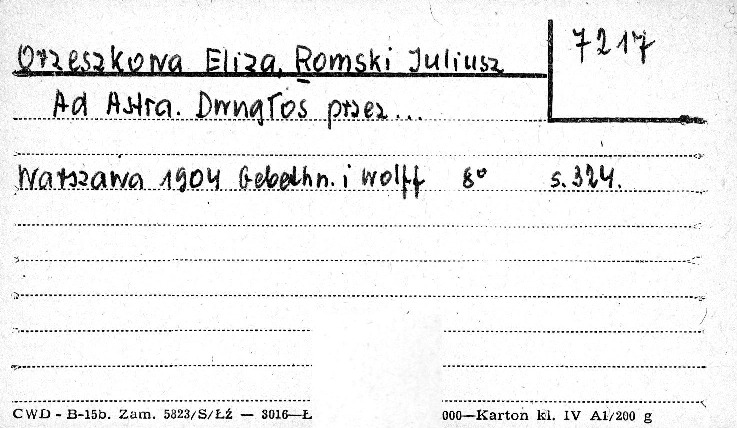 Orzeszkowa Eliza, Romski Juliusz
7217
Ad Astra. Dwugłos przez...
Warszawa 1904 Gebethn. i Wolff 8° s. 324.
CWD - B-15b. Zam. 5823/S/Łź — 3016—Ł
000—Karton kl. IV A1/200 g